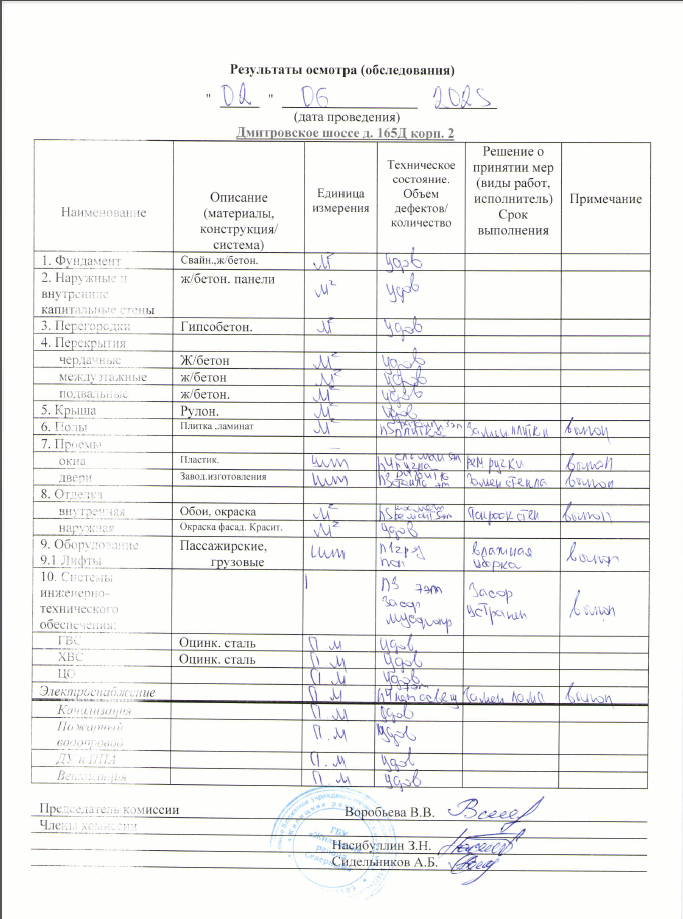 Результаты осмотра (обследования)
" 02 " 06 2025
(дата проведения)
Дмитровское шоссе д. 165Д корп. 2
Наименование Описание (материалы, конструкция/ система) Единица измерения Техническое состояние. Объем дефектов/ количество Решение о принятии мер (виды работ, исполнитель) Срок выполнения Примечание
1. Фундамент Свайн.,ж/бетон. м² удов
2. Наружные и внутренние капитальные стены ж/бетон. панели м² удов
3. Перегородки Гипсобетон. м² удов
4. Перекрытия
чердачные Ж/бетон м² удов
междуэтажные ж/бетон м² удов
подвальные ж/бетон. м² удов
5. Крыша Рулон. м² удов
6. Полы Плитка ,ламинат м² плитка замен плитки выпол
7. Проемы
окна Пластик. шт ручка рем ручки выпол
двери Завод.изготовления шт стекло замен стекла выпол
8. Отделка
внутренняя Обои, окраска м² покраск стен выпол
наружная Окраска фасад. Красит. м² удов
9. Оборудование
9.1 Лифты Пассажирские, грузовые шт п1 гряз пол влажная уборка выпол
10. Системы инженерно-технического обеспечения: п3 7эт засор мусоропр Засор устранен выпол
ГВС Оцинк. сталь П м удов
ХВС Оцинк. сталь П м удов
ЦО П м удов
Электроснабжение П м нет освещ замен ламп выпол
Канализация П.м удов
Пожарный водопровод П.м удов
ДУ и ППА П.м удов
Вентиляция П м удов
Председатель комиссии Воробьева В.В.
Члены комиссии
Насибуллин З.Н.
Сидельников А.Б.